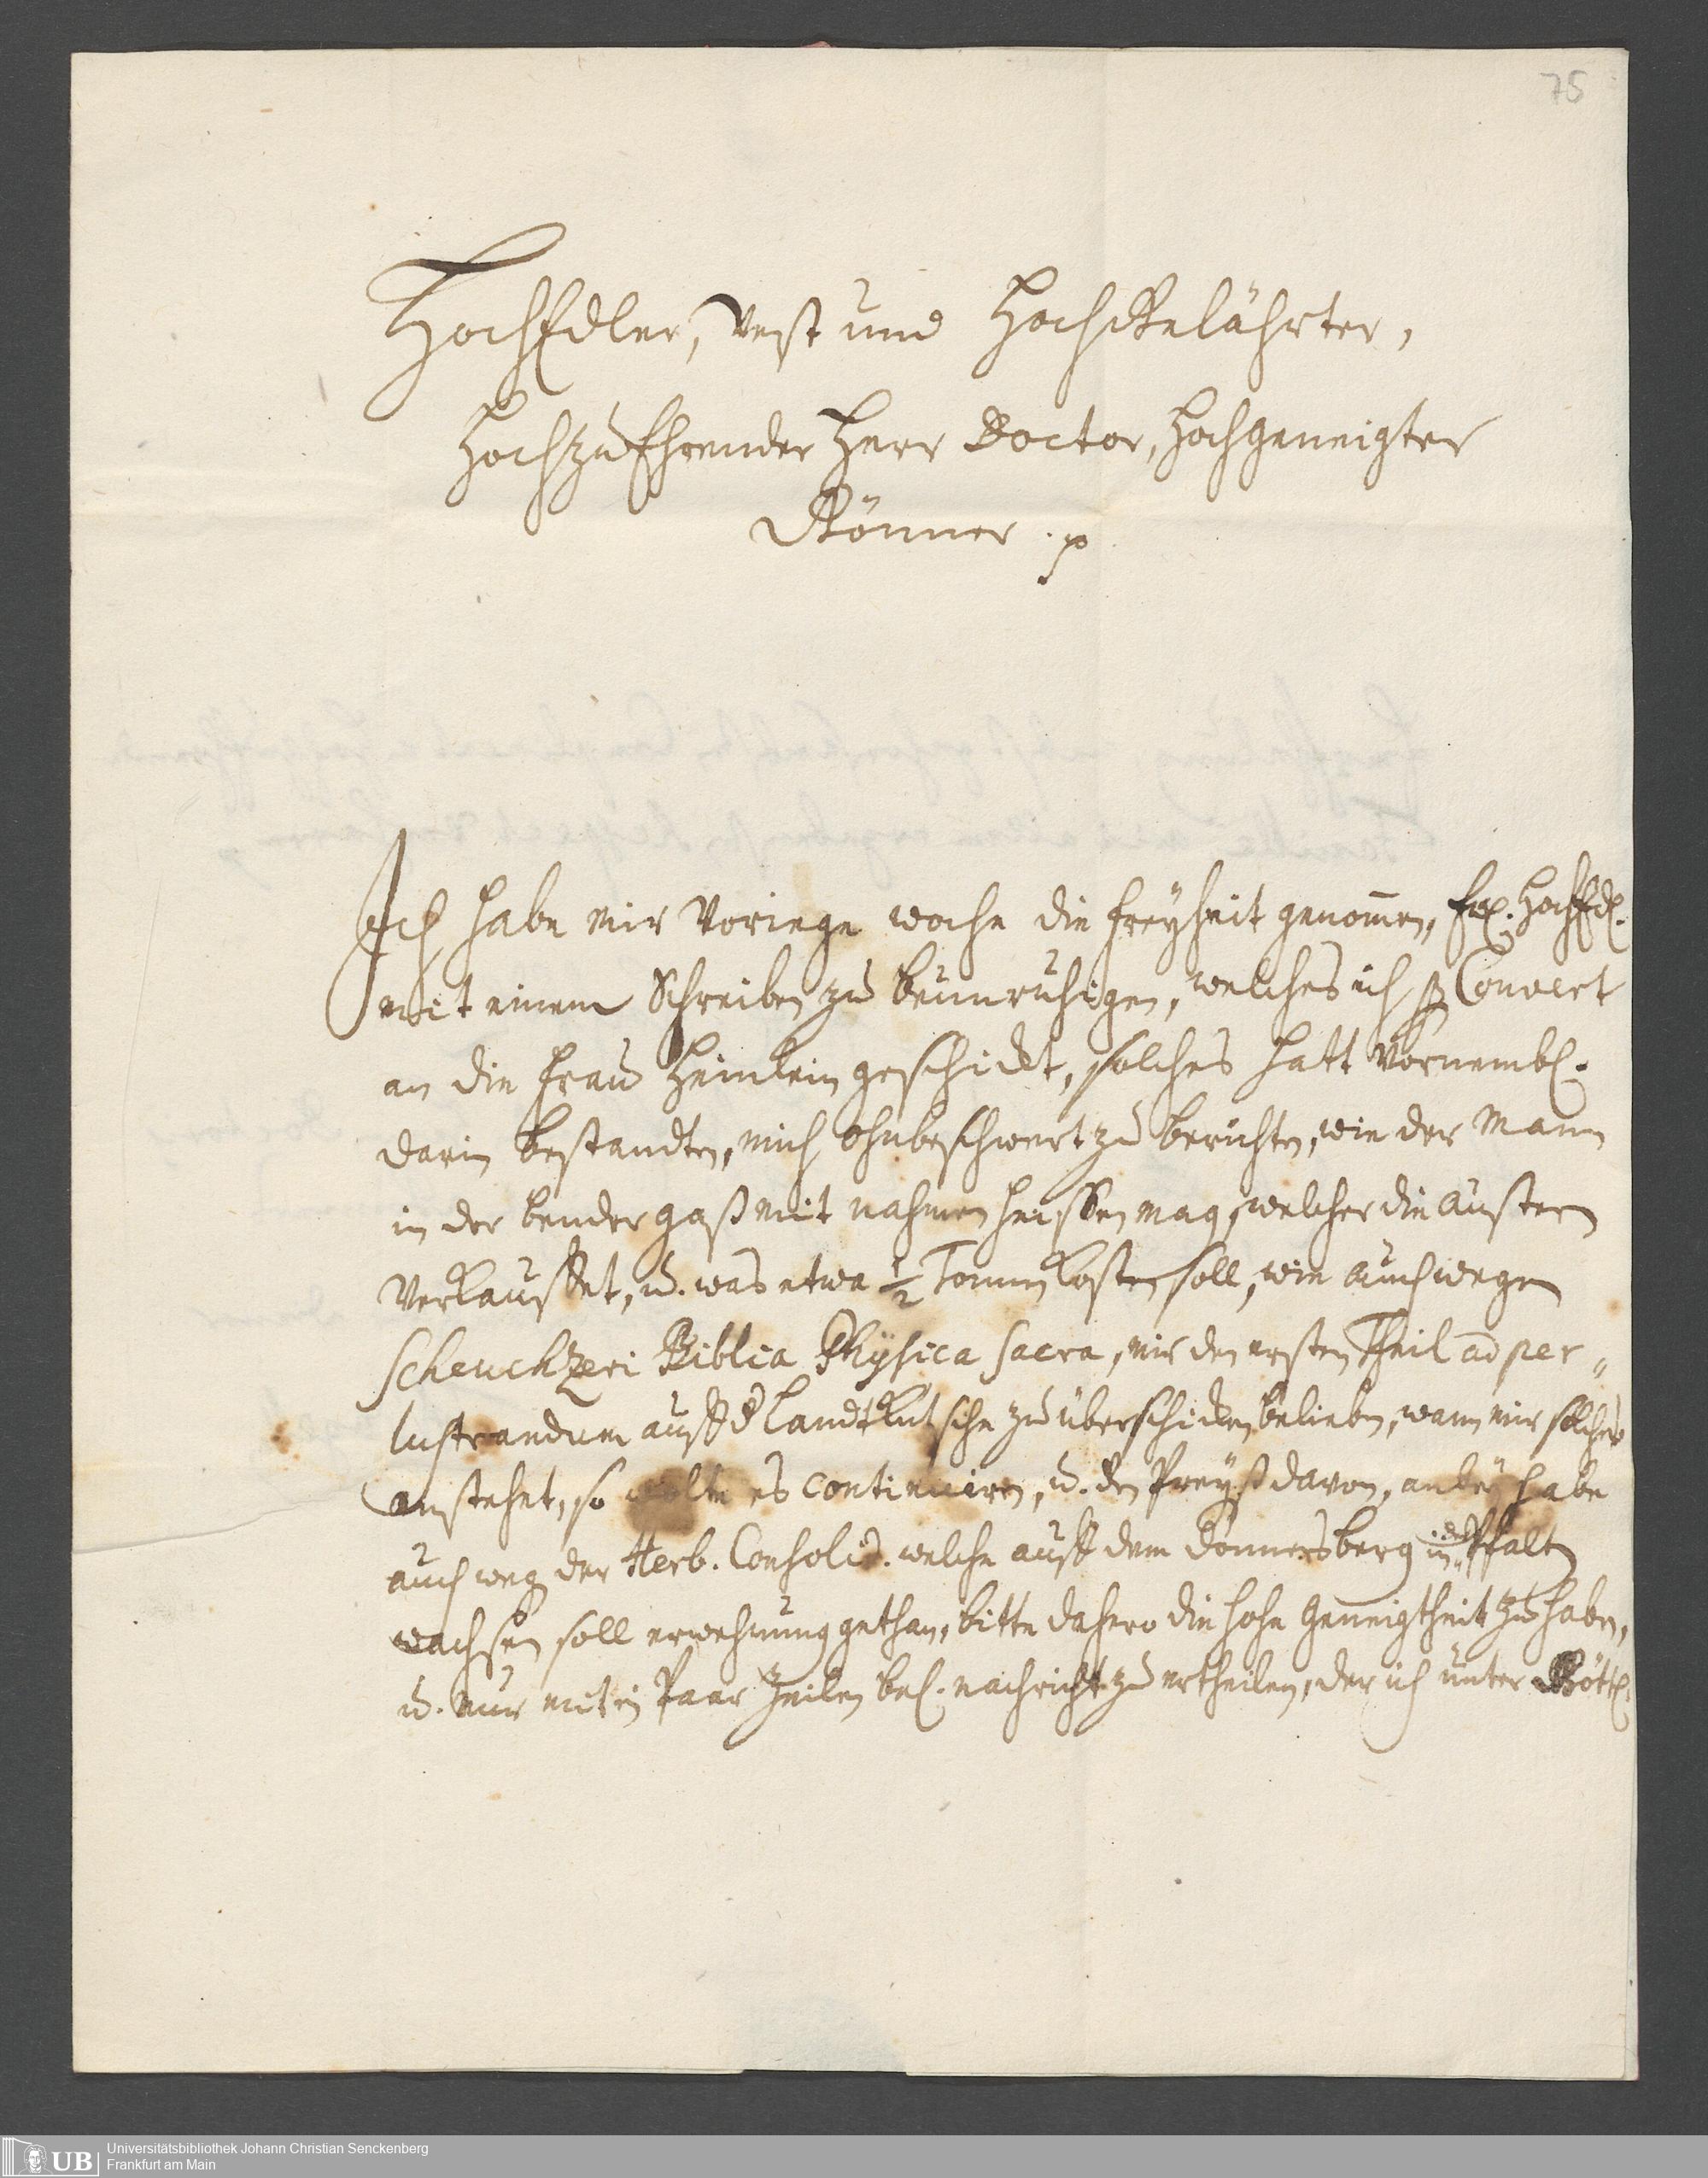 75
HochEdler, Vest und HochGelährter,
HochzuEhrender Herr Doctor, Hochgeneigter
Gönner. p
Ich habe mir Vorige woche die freyheit genom̄en, Ew. HochEdl.
mit einem Schreiben zu beunruhigen, welches ich p Couvert
an die Frau Heinlein geschickt, solches hatt Vornembl.
darin bestandten, mich ohnbeschwert zu berichten, wie der Mann
in der bendergaß mit nahmen heissen mag, welcher die austern
Verkauffet, u. was etwa ½ Tonnen kosten soll, wie auch wegen
Scheuchzeri Biblia Physica Sacra, mir den ersten Theil ad per„
lustrandum auff d Landtkutsche zu überschicken belieben, wann mir solches
anstehet, so wolte es continuiren, u. den Preyß davon, anbey habe
auch weg. der Herb. Consolid. welche auff dem Donnersberg in der Pfaltz
wachsen soll erwehnung gethan, bitte dahero die hohe Geneigtheit zu haben,
u. nur mit ein Paar Zeilen bel. nachricht zu ertheilen, der ich unter Göttl.
UB
Universitätsbibliothek Johann Christian Senckenberg
Frankfurt am Main